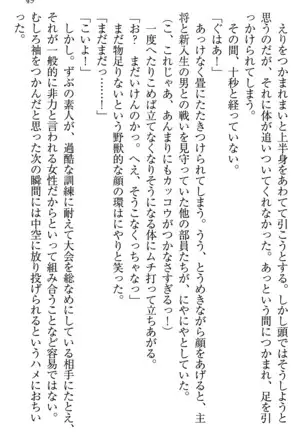 えりをつかまれまいと上半身をあわてて引こうとする。
思うのだが、それに体が追いついてくれなかった。あっという間につかまれ、足を引
っかけられてしまう。
その間、十秒と経っていない。
「ぐはあ!」
あっけなく畳にたたきつけられてしまう。うう、とうめきながら顔をあげると、主
将と新入生の男との戦いを見守っていた他の部員たちが、にやにやとしていた。
(こ、これじゃあ、あんまりにもカッコウがつかなさすぎるっー!)
一度へたりこめば立てなくなりそうになる体にムチ打って立ちあがる。
「お? まだいけんのか。へえ、そうこなくっちゃな」
まだ物足りないという野獣的な顔の環はにやりと笑った。
「まだまだっ……!」
「こいよ!」
しかし。ずぶの素人が、過酷な訓練に耐えて大会を総なめにしている相手にたとえ、
それが一般的に非力と言われる女性だからといって組み合うことなど容易ではない。
むしろ袖をつかんだと思った次の瞬間には中空に放り投げられるというハメにおちい
った。